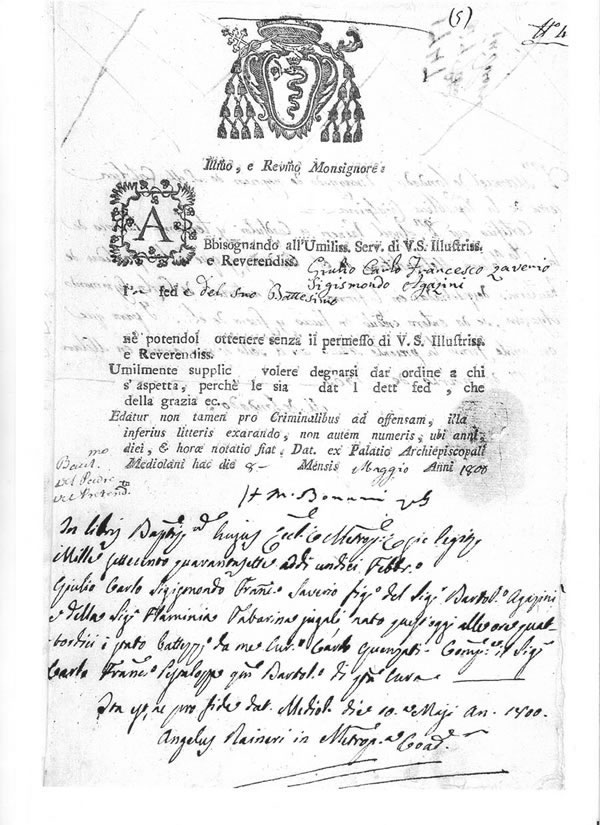 (5)
N° 4
Illmo, e Revmo Monsignore:
ABbisognando all'Umiliss. Serv. di V.S. Illustriss.
e Reverendiss. Giulio Carlo Francesco Xaverio
Sigismondo Agazini
l'a fed e del suo Battesimo
nè potendol ottenere senza il permesso di V. S. Illustriss.
e Reverendiss.
Umilmente supplic volere degnarsi dar ordine a chi
s'aspetta, perchè le sia dat l dett fed, che
della grazia ec.
Edatur non tamen pro Criminalibus ad offensam, illa
inferius litteris exarando, non autem numeris, ubi anni,
diei, & horæ notatio fiat. Dat. ex Palatio Archiepiscopali
Mediolani hac die 8 Mensis Maggio Anni 1800
Batt.mo
del Padre
del Pretend.te
In libris Baptis. hujus Eccl. Metrop.
Mille settecento quarantasette addi undici Febbr.o
Giulio Carlo Sigismondo Franc.o Saverio fig.o del Sig.r Bartol.o Agazini
e della Sig.ra Flaminia Tabarina jugali nato quest'oggi alle ore quat-
tordici è stato battezz.o da me Cur.o Carlo Comp.e il Sig.r
Carlo Franc.o Pessaloppa qm Bartol.o di q.ta Cura
In q. pro fide dat. Mediol. die 10 Maji An. 1800.
Angelus Raineri in Metrop. Coad.